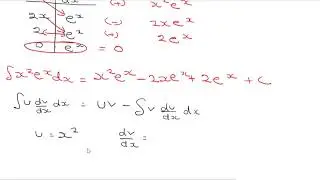 eˣ (+) x²eˣ
2x eˣ (-) = 2xeˣ
2 eˣ (+) 2eˣ
0 eˣ = 0
∫x²eˣdx = x²eˣ-2xeˣ+2eˣ+C
∫u dv/dx dx = uv - ∫v du/dx dx
u = x² dv/dx =